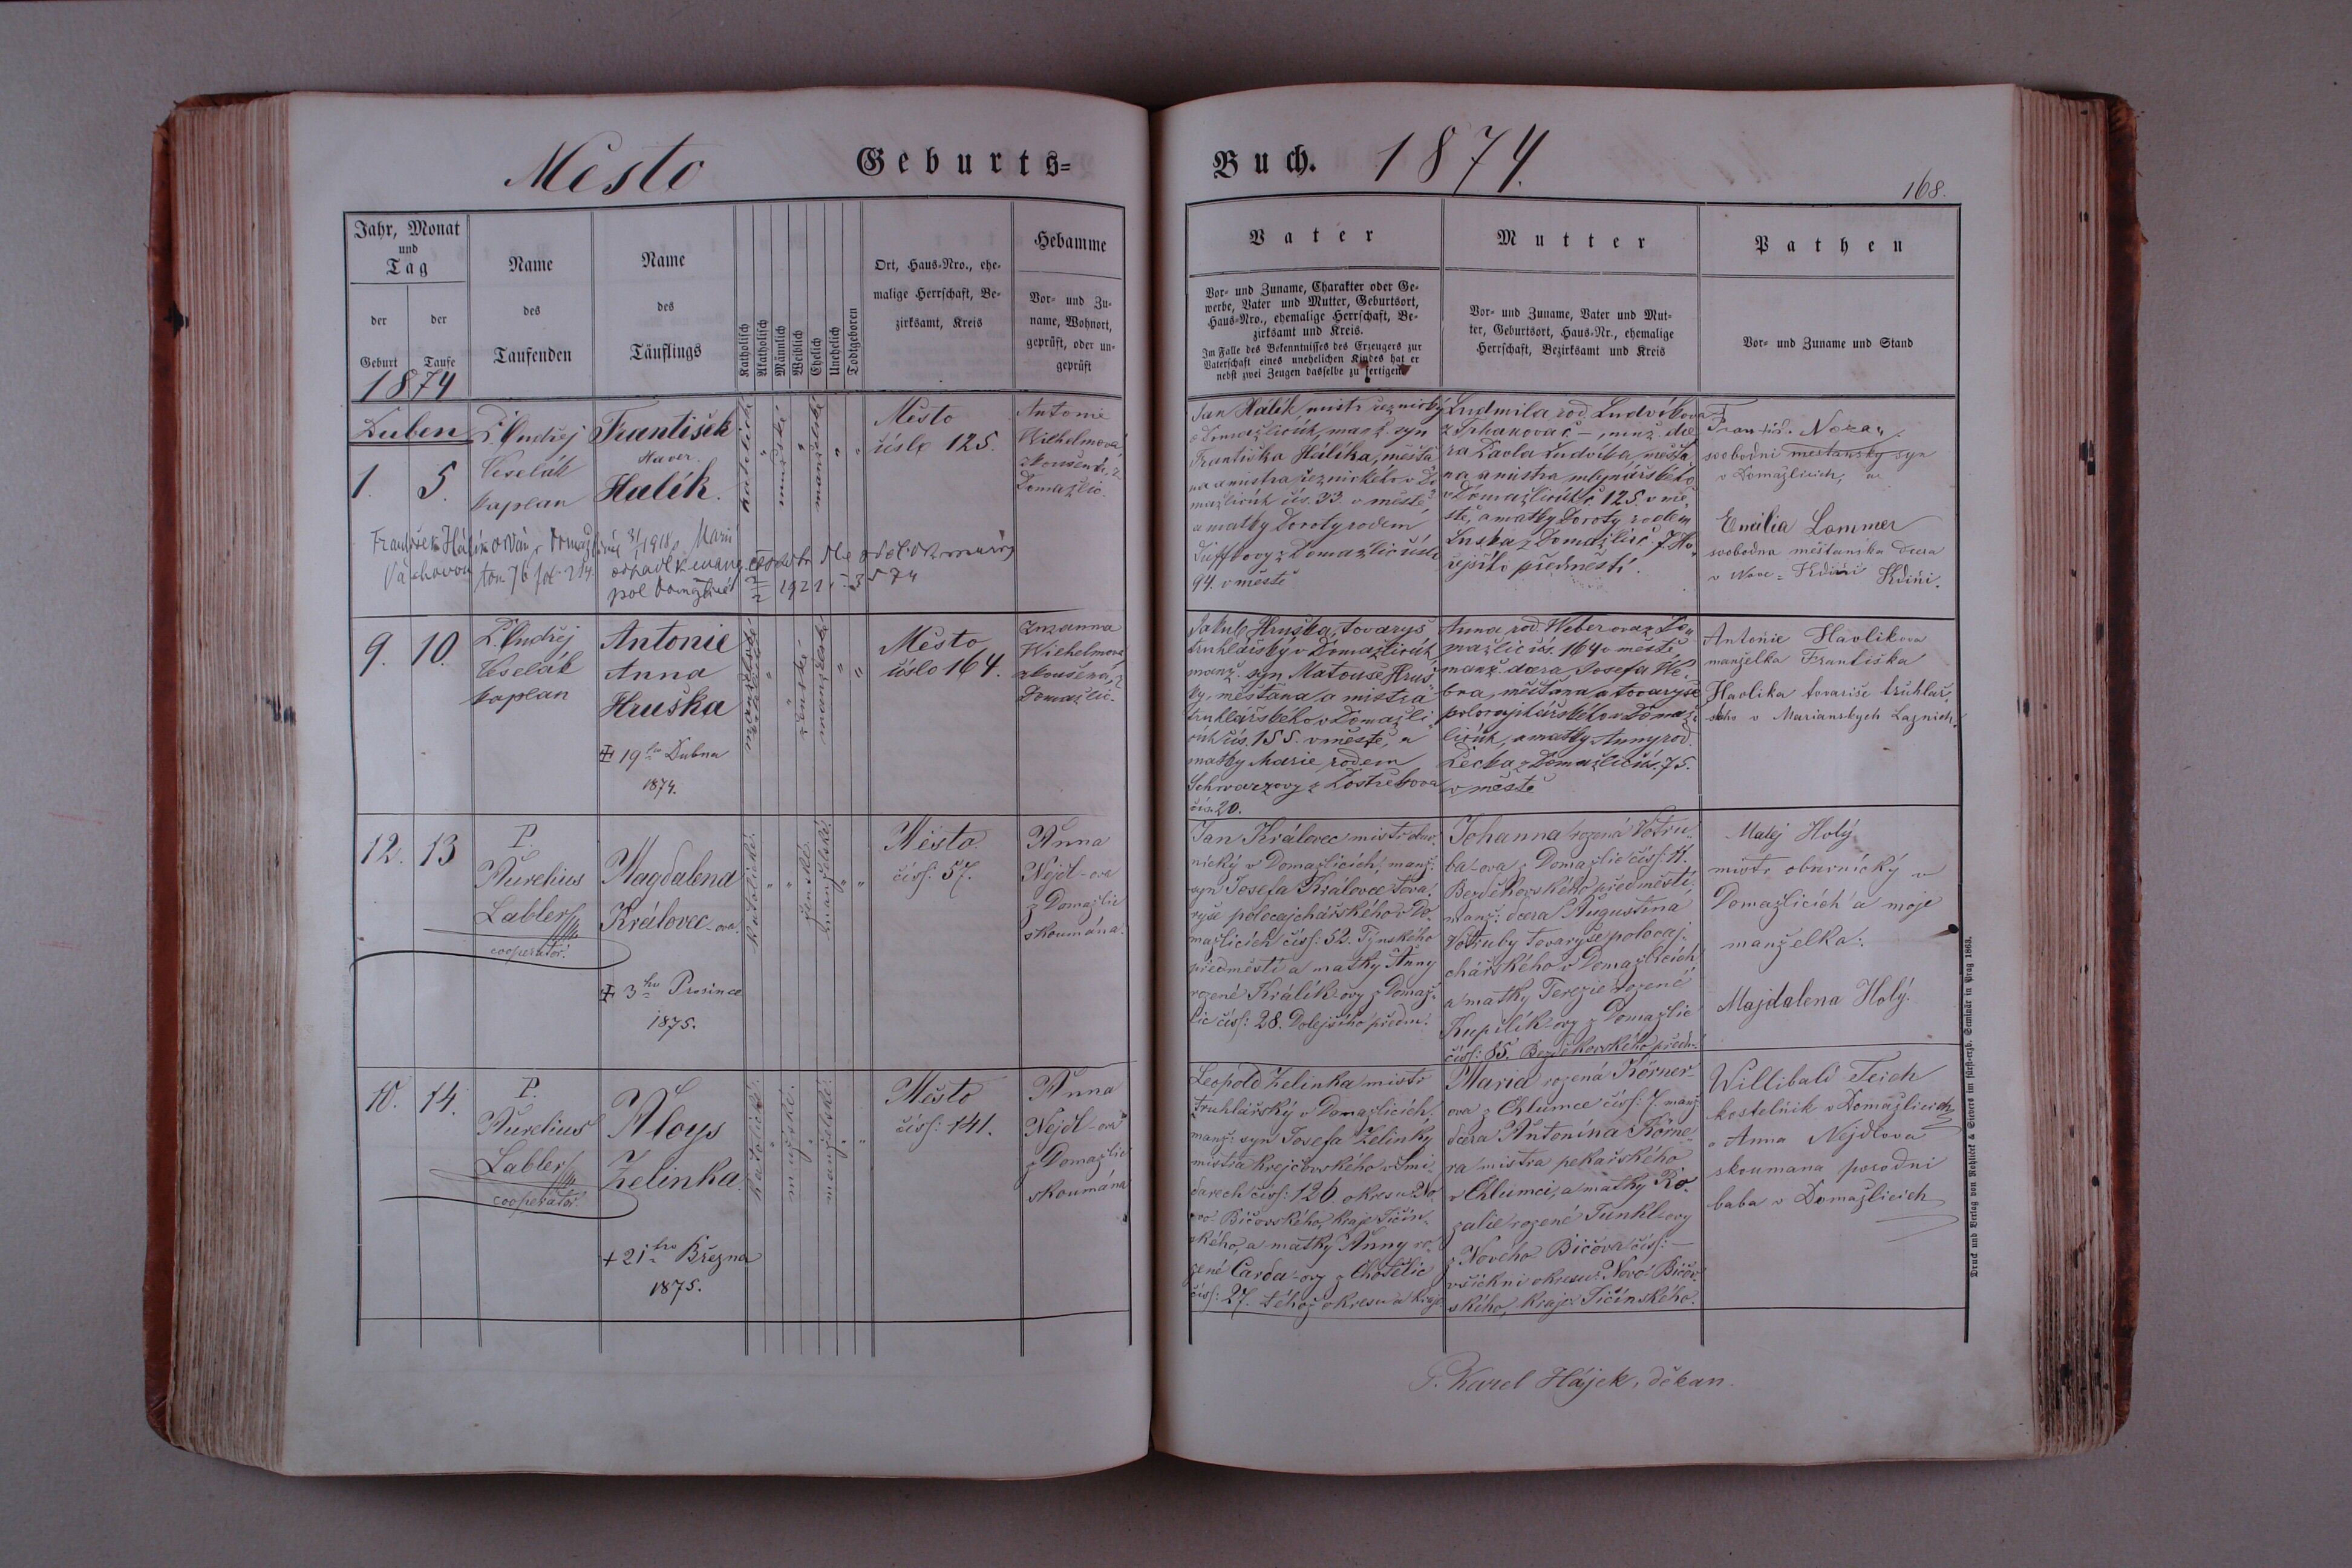 Město
Geburts=
Buch.
1874.
168.
Jahr, Monat
und
Tag
der
Geburt
der
Taufe
Name
des
Taufenden
Name
des
Täuflings
Katholisch
Akatholisch
Männlich
Weiblich
Ehelich
Unehelich
Todtgeboren
Ort, Haus-Nro., ehe-
malige Herrschaft, Be-
zirksamt, Kreis
Hebamme
Vor- und Zu-
name, Wohnort,
geprüft, oder un-
geprüft
Vater
Vor- und Zuname, Charakter oder Ge-
werbe, Vater und Mutter, Geburtsort,
Haus-Nro., ehemalige Herrschaft, Be-
zirksamt und Kreis.
Im Falle des Bekenntnisses des Erzeugers zur
Vaterschaft eines unehelichen Kindes hat er
nebst zwei Zeugen dasselbe zu fertigen.
Mutter
Vor- und Zuname, Vater und Mut-
ter, Geburtsort, Haus-Nr., ehemalige
Herrschaft, Bezirksamt und Kreis
Pathen
Vor- und Zuname und Stand
1874
Duben
1.
5.
P. Ondřej
Veselák
kaplan
František
Xaver
Halík.
mužské
manželské
Město
číslo 125.
Antonie
Wilhelmová,
zkoušená, z
Domažlic.
Jan Halík, mistr řeznický
v Domažlicích, manž. syn
Františka Halíka, měšťa
na a mistra řeznického v Do
mažlicích čís. 33. v městě,
a matky Doroty rodem
z Domažlic číslo
94. v městě
Ludmila rod. Ludvíkova
z Trhanova č –, manž. dce
ra Karla Ludvíka, měšťa
na a mistra mlynářského
v Domažlicích č. 125. v mě
stě, a matky Doroty rodem
z Domažlic č. 7. Ho
řejšího předměstí.
svobodni mestansky syn
v Domažlicich, a
Emilia Lammer
svobodna měštanska dcera
v Nove = Kdini Kdini.
František Halík oddán v Domažlicích 1918 s Marií
tom 76 fol. 214.
1921
9.
10.
P. Ondřej
Veselák
kaplan
Antonie
Anna
Hruška
19ho Dubna
1874.
ženské
manželské
Město
číslo 164.
Zuzanna
Wilhelmova,
zkoušená, z
Domažlic.
Jakub Hruška, tovaryš
truhlářský v Domažlicích,
manž. syn Matouše Hruš
ky, měšťana a mistra
truhlářského v Domažli
cích čís. 155. v městě, a
matky Marie rodem
Schwarzovy z Postřekova
čís. 20.
Anna rod. Weberova z Do
mažlic čís. 164 v městě
manž. dcera Josefa We
bra, měšťana a tovaryše
polocajkářského v Domaž
licích, a matky Anny rod.
Pecka z Domažlic čís. 75.
v městě
Antonie Havlikova
manželka Františka
Havlika tovariše truhlař
skeho v Marianskych Laznich.
12.
13
P.
Aurelius
Labler
cooperator.
Magdalena
Královec-ova.
3ho Prosince
1875.
katolické.
ženské.
manželské.
Město.
čísl: 57.
Anna
Nejdl-ova
z Domažlic
zkoumána.
Jan Královec mistr obuv-
nický v Domažlicích, manž:
syn Josefa Královce tova-
ryše polocajchářského v Do-
mažlicích čísl: 52. Týnského
předměstí a matky Anny
rozené Králík-ovy z Domaž-
lic čísl: 28. Dolejšího předm:
Johanna rozená Votru-
ba-ova z Domažlic čísl: 11.
Bezděkovského předměstí,
manž: dcera Augustina
Votruby tovaryše polocaj-
chářského v Domažlicích
a matky Terezie rozené
Kupilík-ovy z Domažlic
čísl: 85. Bezděkovského předm:
Matej Holý
mistr obuvnický v
Domažlicích a moje
manželka:
Majdalena Holý.
10.
14.
P.
Aurelius
Labler
cooperator.
Aloys
Zelinka.
+ 21ho Března
1875.
katolické.
mužské.
manželské.
Město
čísl: 141.
Anna
Nejdl-ova
z Domažlic
zkoumána
Leopold Zelinka mistr
truhlářský v Domažlicích,
manž: syn Josefa Zelinky
mistra krejčovského v Smi-
darech čísl: 126 okresu No-
vo-Bičovského, kraje Jičín-
ského, a matky Anny ro-
zené Čarda-ovy z Chotělic
čísl: 27. téhož okresu a kraje
Maria rozená Körner-
ova z Chlumce čísl: 7. manž:
dcera Antonína Körne-
ra mistra pekařského
v Chlumci, a matky Ro-
zalie rozené Tunkl-ovy
z Nového Bičova čísl: –
všichni okresu Novo-Bičov-
ského, kraje Jičínského.
Willibald Teich
kostelnik v Domažlicich
a Anna Nejdlova
skoumana porodni
baba v Domažlicich
P. Karel Hájek, děkan.
Druck und Verlag von Rohliček & Sievers im fürst-erzb. Seminär in Prag 1863.